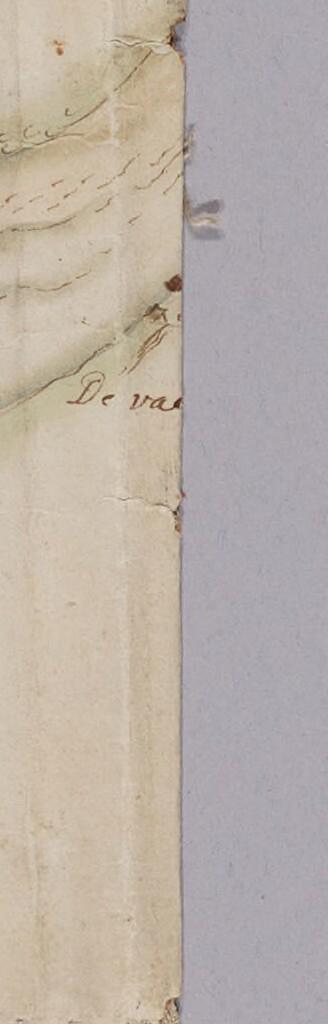 De va